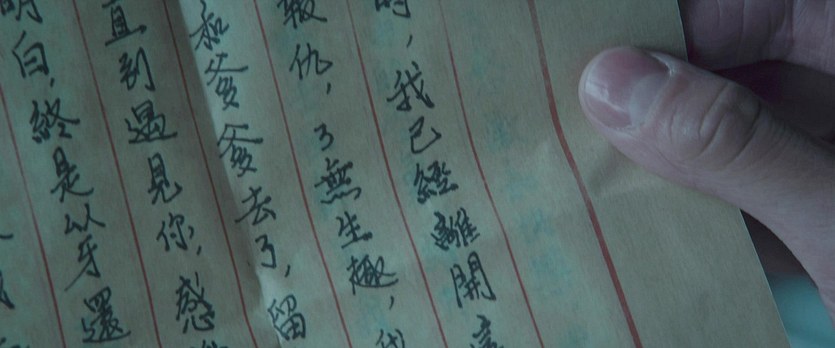 時，我已經離開
報仇，了無生趣，
和爹爹去了，留
直到遇見你，感
明白，終是以牙還